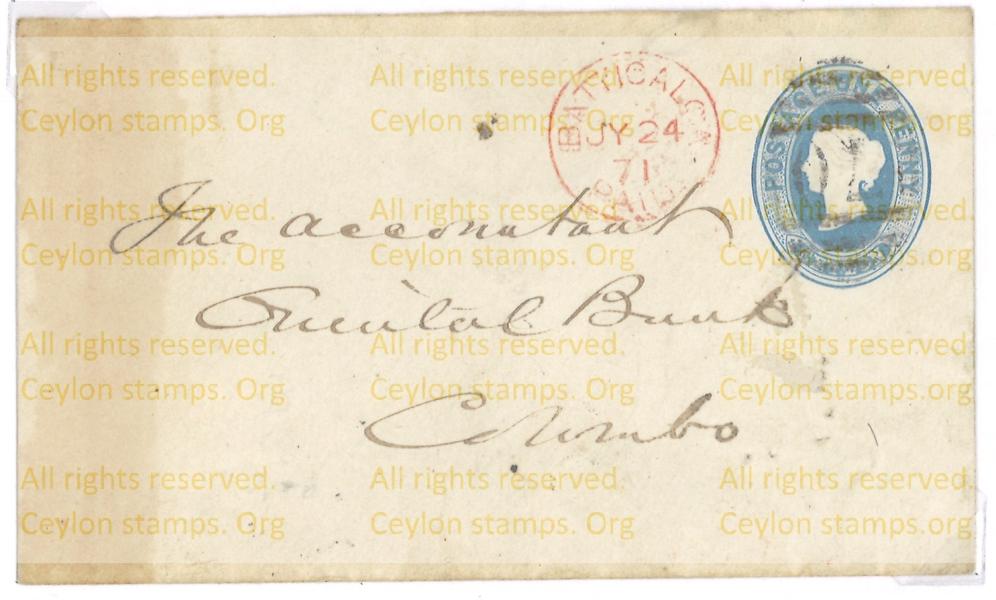 All rights reserved. All rights reserved. All rights reserved.
Ceylon stamps. Org Ceylon stamps. Org Ceylon stamps.org
BATTICALOA
JY 24
71
PAID
POSTAGE ONE PENNY
All rights reserved. All rights reserved. All rights reserved.
The Acconntant
Ceylon stamps. Org Ceylon stamps. Org Ceylon stamps.org
Oriental Bank
All rights reserved. All rights reserved. All rights reserved.
Ceylon stamps. Org Ceylon stamps. Org Ceylon stamps.org
Colombo
All rights reserved. All rights reserved. All rights reserved.
Ceylon stamps. Org Ceylon stamps. Org Ceylon stamps.org